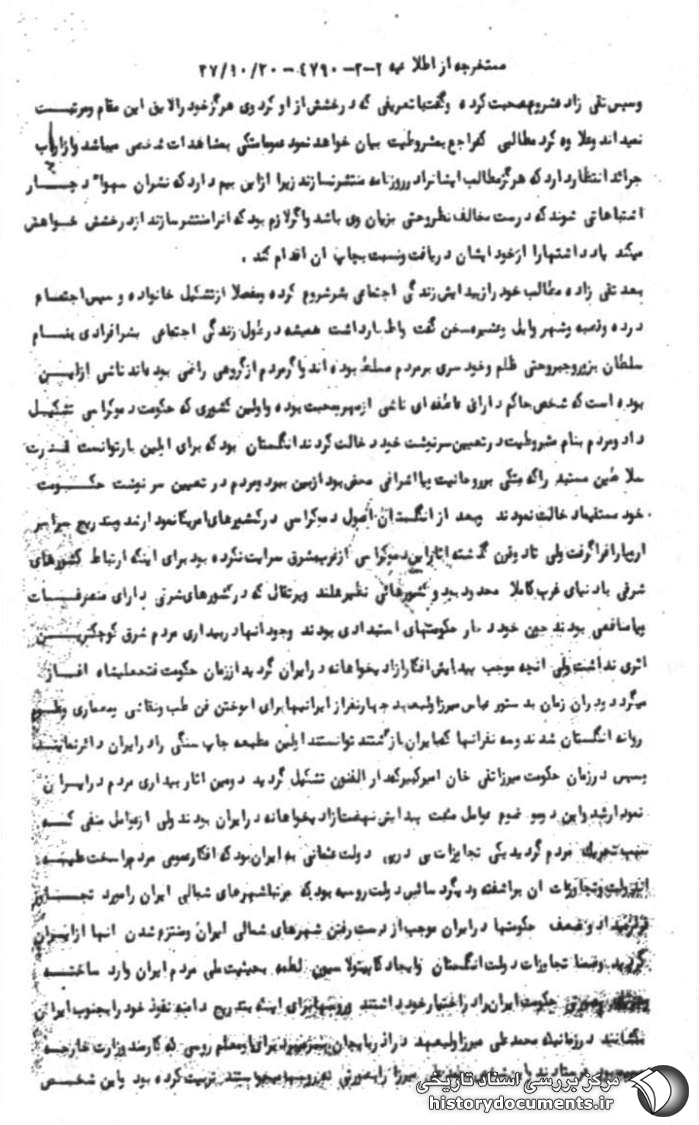 مستخرجه از اطلاعیه ۲-۲-۴۷۹۰-۲۷/۱۰/۲۰
وسپس تقی زاده شروع بصحبت کرده وگفت با تعریفی که درخشش از او کرد وی هرگز خود را لایق این مقام ومرتبت
نمیداند وعلاوه کرد مطالبی که راجع بمشروطیت بیان خواهد نمود عموما متکی بمشاهدات شخصی میباشد واز ارباب
جرائد انتظار دارد که هرگز مطالب ایشانرا در روزنامه منتشر نسازند زیرا از این بیم دارد که نشر آن سهوا" دچار
اشتباهاتی شوند که درست مخالف نظر وحتی بزیان وی باشد واگر لازم بود که انرا منتشر سازند از درخشش خواهش
میکند یادداشتها را از خود ایشان دریافت ونسبت بچاپ ان اقدام کند .
بعد تقی زاده مطالب خود را از پیدایش زندگی اجتماعی بشر شروع کرده ومفصلا از تشکیل خانواده و سپس اجتماع
درده وقصبه وشهر وایل وعشیره سخن گفت واظهارداشت همیشه در طول زندگی اجتماعی بشر افرادی بنام
سلطان بزور وجبر وحتی ظلم وخودسری بر مردم مسلط بوده اند واگر مردم از گروهی راضی بوده باند ناشی از این
بوده است که شخص حاکم دارای عاطفه ای ناشی از مهر ومحبت بوده واولین کشوری که حکومت دموکراسی تشکیل
داد ومردم بنام مشروطیت در تعیین سرنوشت خود دخالت کردند انگلستان بود که برای اولین بار توانست قدرت
سلاطین مستبد را که متکی بروحانیت ویا اشرافی محض بود از بین ببرد ومردم در تعیین سرنوشت حکومت
خود مستقیما دخالت نمودند وبعد از انگلستان اصول دموکراسی در کشورهای امریکا نمودارشد وبتدریج سراسر
اروپا را فرا گرفت ولی تا دو قرن گذشته اثار این دموکراسی از غرب بشرق سرایت نکرده بود برای اینکه ارتباط کشورهای
شرقی با دنیای غرب کاملا محدود بود و کشورهائی نظیر هلند وپرتقال که در کشورهای شرقی دارای متصرفات
ویا منافعی بودند چون خود دچار حکومتهای استبدادی بودند وجود انها در بیداری مردم شرق کوچکترین
اثری نداشت ولی انچه موجب پیدایش افکار آزادیخواهانه در ایران گردید از زمان حکومت فتحعلیشاه آغاز
میگردد ودر ان زمان بدستور عباس میرزا ولیعهد چهار نفر از ایرانیها برای اموختن فن طب ونقاشی ومعماری وطبع
روانه انگلستان شدند وسه نفر انها که بایران بازگشتند توانستند اولین مطبعه چاپ سنگی را در ایران دائر نمایند
وسپس در زمان حکومت میرزا تقی خان امیرکبیر که دارالفنون تشکیل گردید دومین اثار بیداری مردم در ایران
نمودار شد واین دو موضوع عوامل مثبت پیدایش نهضت ازادیخواهانه در ایران بودند ولی از عوامل منفی که
سبب تحریک مردم گردید یکی تجاوزات پی درپی دولت عثمانی به ایران بود که افکار عمومی مردم را سخت علیه
این دولت وتجاوزات ان براشفته ودیگر سیاست دولت روسیه بود که مرتبا شهرهای شمالی ایران را مورد تجاوز
قرار میداد وضعف حکومتها در ایران موجب از دست رفتن شهرهای شمالی ایران ومنتزع شدن انها از ایران
گردید وضمنا تجاوزات دولت انگلستان وایجاد کاپیتولاسیون لطمه بحیثیت ملی مردم ایران وارد ساخته
حکومت ایران را در اختیار خود داشتند وروسها برای اینکه بتدریج دامنه نفوذ خود را بجنوب ایران
بکشانند در زمانیکه محمد علی میرزا ولیعهد در اذربایجان بسر میبرد برای او معلم روسی که کارمند وزارت خارجه
بود فرستادند میرزا را بصورتی که روسها میخواستند تربیت کرده بود واین شخص
مرکز بررسی اسناد تاریخی
historydocuments.ir